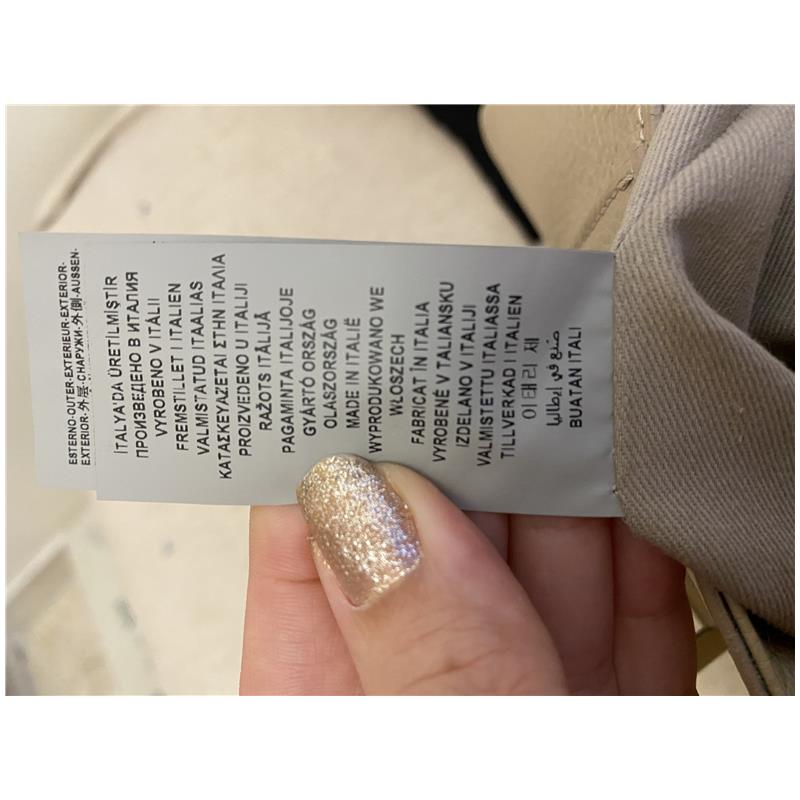 ESTERNO-OUTER-EXTERIEUR-EXTERIOR-
EXTERIOR-外层-СНАРУЖИ-外側-AUSSEN-
İTALYA'DA ÜRETİLMİŞTİR
ПРОИЗВЕДЕНО В ИТАЛИЯ
VYROBENO V ITÁLII
FREMSTILLET I ITALIEN
VALMISTATUD ITAALIAS
ΚΑΤΑΣΚΕΥΑΖΕΤΑΙ ΣΤΗΝ ΙΤΑΛΙΑ
PROIZVEDENO U ITALIJI
RAŽOTS ITĀLIJĀ
PAGAMINTA ITALIJOJE
GYÁRTÓ ORSZÁG
OLASZORSZÁG
MADE IN ITALIË
WYPRODUKOWANO WE
WŁOSZECH
FABRICAT ÎN ITALIA
VYROBENÉ V TALIANSKU
IZDELANO V ITALIJI
VALMISTETTU ITALIASSA
TILLVERKAD I ITALIEN
이태리 제
صنع في إيطاليا
BUATAN ITALI